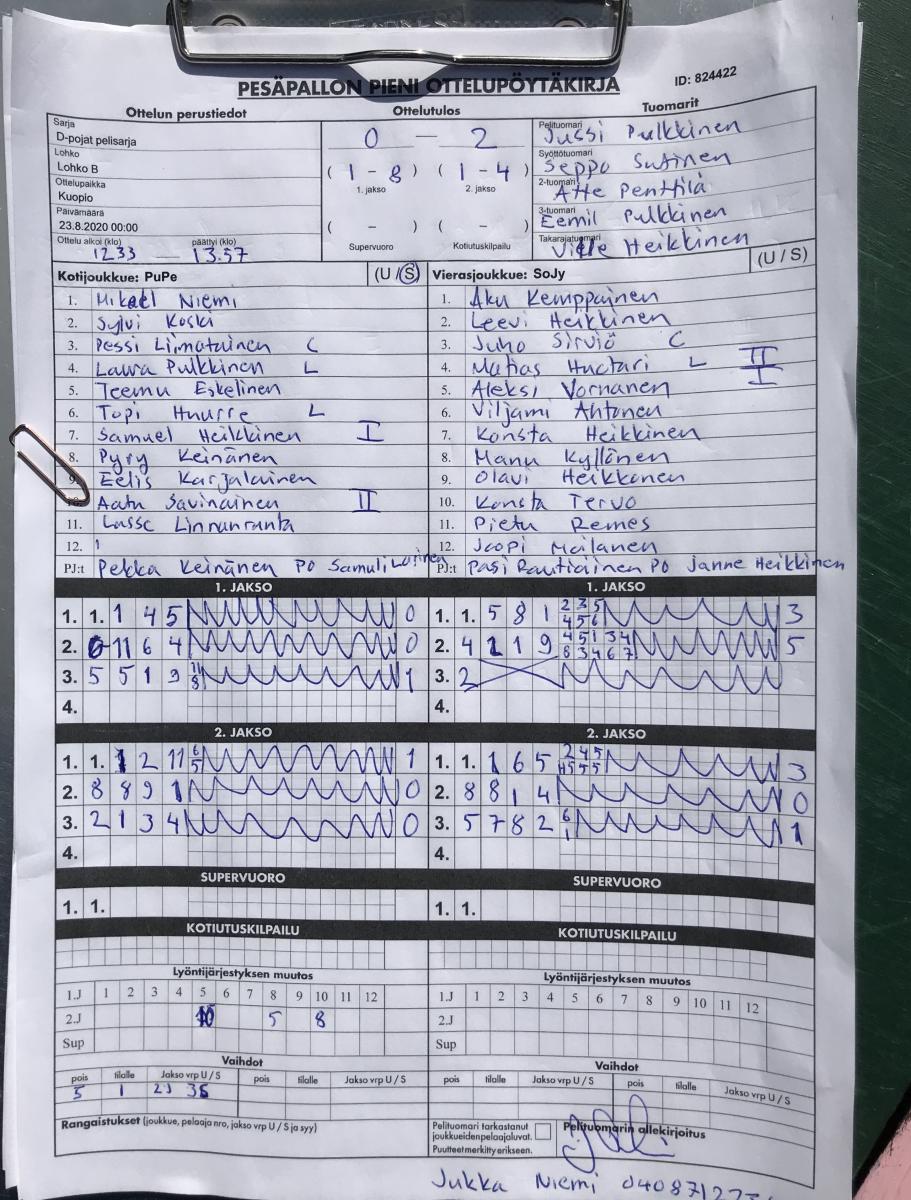 PESÄPALLON PIENI OTTELUPÖYTÄKIRJA
ID: 824422
Ottelun perustiedot
Ottelutulos
Tuomarit
Sarja
D-pojat pelisarja
Lohko
Lohko B
Ottelupaikka
Kuopio
Päivämäärä
23.8.2020 00:00
Ottelu alkoi (klo) päättyi (klo)
12.33 — 13.57
0 — 2
( 1 - 8 ) ( 1 - 4 )
1. jakso 2. jakso
( - ) ( - )
Supervuoro Kotiutuskilpailu
Pelituomari
Jussi Pulkkinen
Syöttötuomari
Seppo Sutinen
2-tuomari
Atte Penttilä
3-tuomari
Eemil Pulkkinen
Takarajatuomari
Ville Heikkinen
Kotijoukkue: PuPe (U / S)
1. Mikael Niemi
2. Sylvi Koski
3. Pessi Liimatainen C
4. Laura Pulkkinen L
5. Teemu Eskelinen
6. Topi Huurre L
7. Samuel Heikkinen I
8. Pyry Keinänen
9. Eelis Karjalainen
10. Aatu Savinainen II
11. Lasse Linnanranta
12.
PJ:t Pekka Keinänen PO Samuli
Vierasjoukkue: SoJy (U / S)
1. Aku Kemppainen
2. Leevi Heikkinen
3. Juho Sirviö C
4. Matias Huttari L II
5. Aleksi Vornanen I
6. Viljami Ahtonen
7. Konsta Heikkinen
8. Manu Kyllönen
9. Olavi Heikkonen
10. Konsta Tervo
11. Pietu Remes
12. Joopi Moilanen
PJ:t Pasi Rautiainen PO Janne Heikkinen
1. JAKSO
1. 1. 1 4 5 0
2. 11 6 4 0
3. 5 5 1 9 11 8 1
4.
1. JAKSO
1. 1. 5 8 1 2 3 5 4 5 6 3
2. 4 2 1 9 4 5 1 3 4 8 3 4 6 7 5
3. 2
4.
2. JAKSO
1. 1. 1 2 11 6 5 1
2. 8 8 9 1 0
3. 2 1 3 4 0
4.
2. JAKSO
1. 1. 1 6 5 2 4 5 5 5 3
2. 8 8 1 4 0
3. 5 7 8 2 6 1 1
4.
SUPERVUORO
1. 1.
SUPERVUORO
1. 1.
KOTIUTUSKILPAILU
KOTIUTUSKILPAILU
Lyöntijärjestyksen muutos
1.J 1 2 3 4 5 6 7 8 9 10 11 12
2.J 5 8
Sup
Lyöntijärjestyksen muutos
1.J 1 2 3 4 5 6 7 8 9 10 11 12
2.J
Sup
Vaihdot
pois tilalle Jakso vrp U / S pois tilalle Jakso vrp U / S
5 1 2J 3S
Vaihdot
pois tilalle Jakso vrp U / S pois tilalle Jakso vrp U / S
Rangaistukset (joukkue, pelaaja nro, jakso vrp U / S ja syy)
Pelituomari tarkastanut
joukkueiden pelaajaluvat.
Puutteet merkitty erikseen.
Pelituomarin allekirjoitus
Jukka Niemi